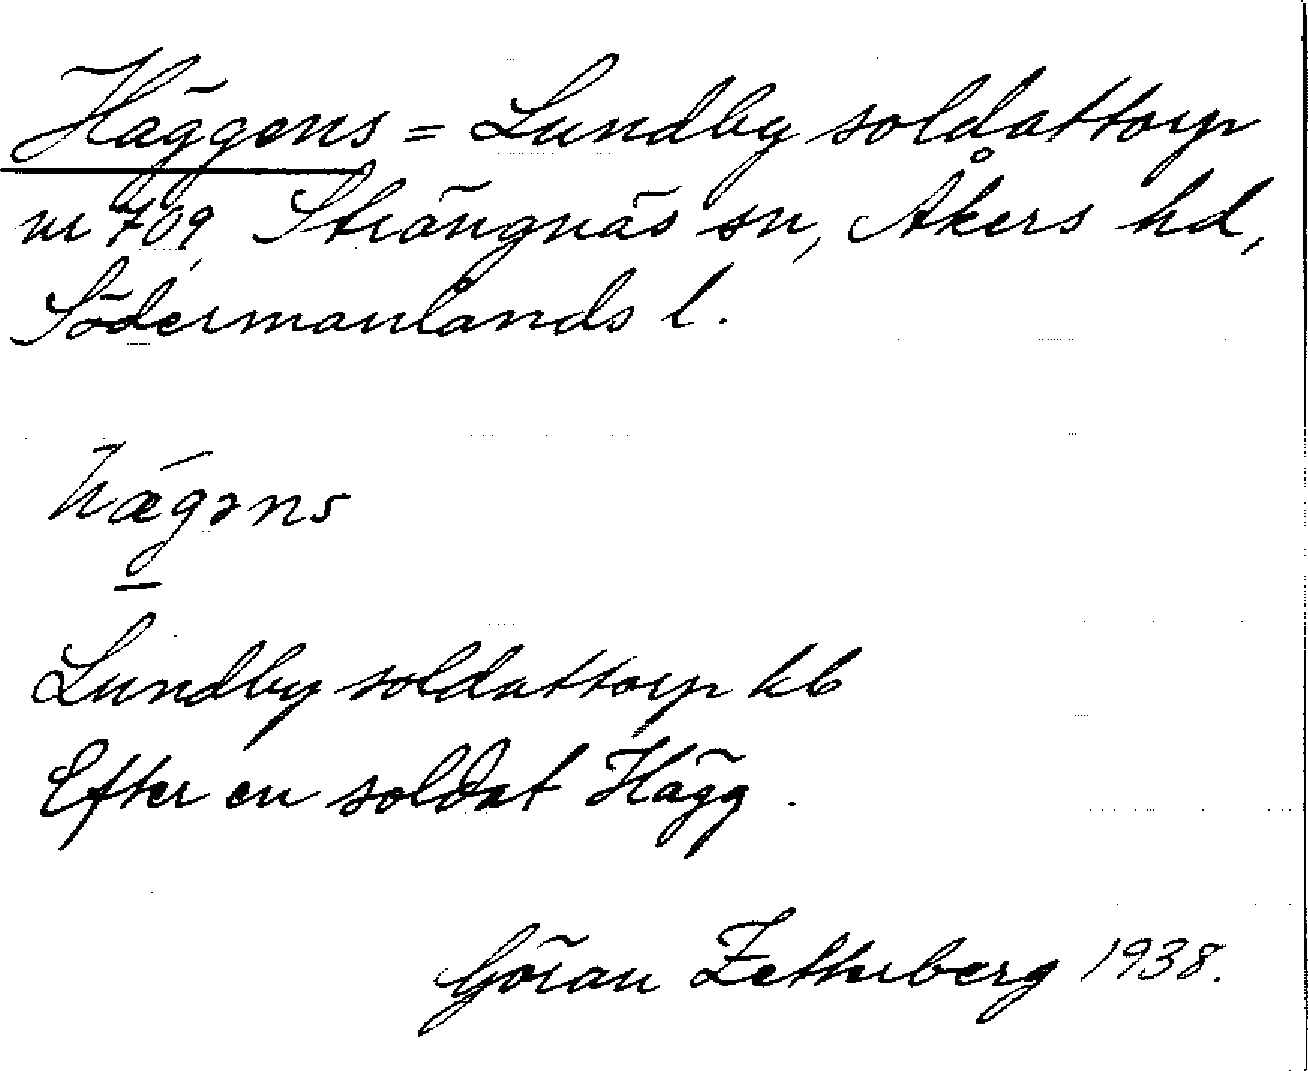 Häggens = Lundby soldattorp
nr 709, Strängnäs sn, Åkers hd,
Södermanlands l.
hægəns
Lundby soldattorp kb
Efter en soldat Hägg.
Göran Zetterberg 1938.